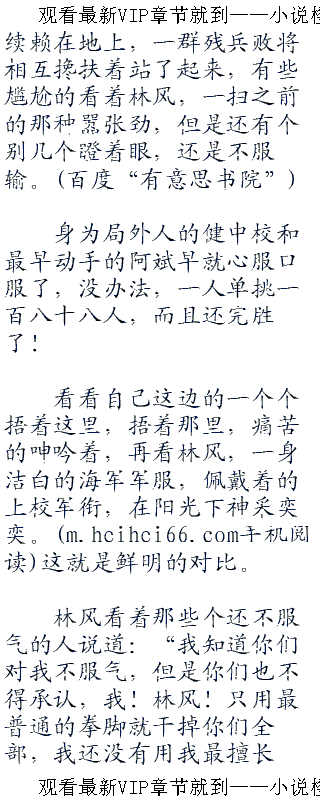 观看最新VIP章节就到——小说检
续赖在地上，一群残兵败将
相互搀扶着站了起来，有些
尴尬的看着林风，一扫之前
的那种嚣张劲，但是还有个
别几个瞪着眼，还是不服
输。(百度“有意思书院”)
身为局外人的健中校和
最早动手的阿斌早就心服口
服了，没办法，一人单挑一
百八十八人，而且还完胜
了！
看看自己这边的一个个
捂着这里，捂着那里，痛苦
的呻吟着，再看林风，一身
洁白的海军军服，佩戴着的
上校军衔，在阳光下神采奕
奕。(m.hcihci66.com手机阅
读)这就是鲜明的对比。
林风看着那些个还不服
气的人说道：“我知道你们
对我不服气，但是你们也不
得承认，我！林风！只用最
普通的拳脚就干掉你们全
部，我还没有用我最擅长
观看最新VIP章节就到——小说检